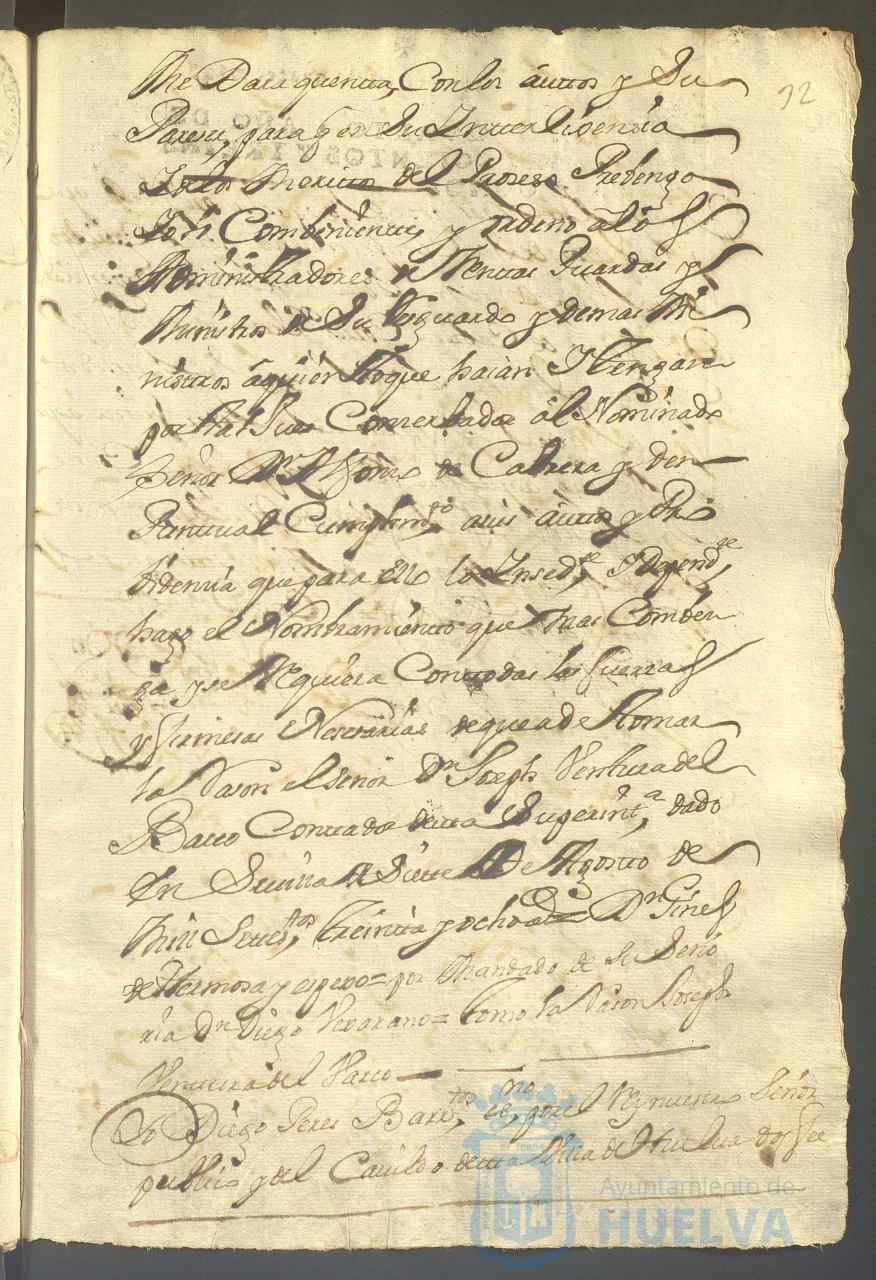 me Dara quenta, Con los autos y Su
Pareser, para q en Su Intteligensia
I de los meritos del Proseso Prebenga
Lo q Combiniere, y ordeno a lo s
Administradores de Renttas Guardas y
Ministros de Su Resguardo y demas Mi
nistros a quien ttoque haian I ttengan
por ttal Jues Conserbador al Nominado
Señor Dn Alfonso de Cabrera y den
Punttual Cumplimto a sus autos y Pro
bidensia que para Ello lo Insidte, I dependte
hago el Nombramientto que mas Comben
ga y se Requiera Con ttodas las fuerzas
y firmesas Nesesarias de que a de ttomar
la Rason el señor Dn Joseph Venttura del
Barco Conttador de esta Superinta, dado
En Sevilla a Siette de Agosto de
Mill Settestos, treintta y ocho as= Dn Gines
de Hermosa y espejo= por Mandado de Su Seño
ria Dn Diego Vejarano= tome la Rason Joseph
Venttura del Varco
Yo Diego Peres Barrtos, esno por el Rey nuestro Señor
publico y del Cavildo de esta Villa de Huelva Doy fee
32
Ayuntamiento de
HUELVA